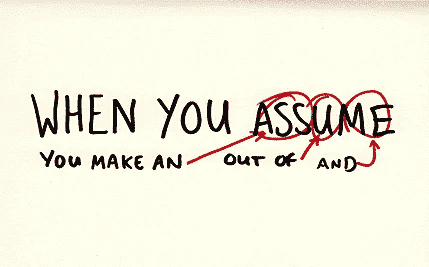 WHEN YOU ASSUME
YOU MAKE AN OUT OF AND